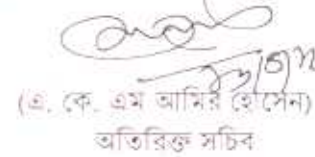 (এ. কে. এম আমির হোসেন)
অতিরিক্ত সচিব